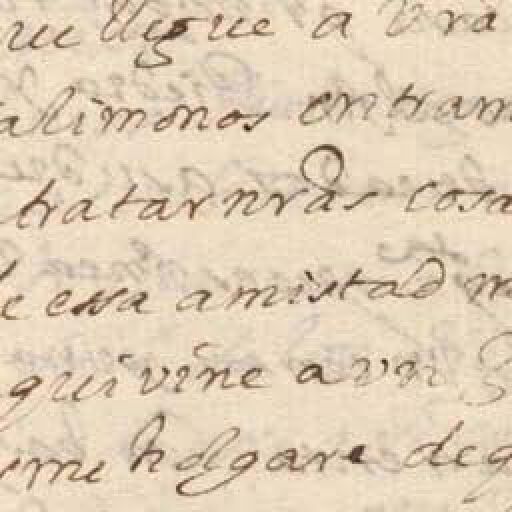 que llegue a vra
alimonos entram
tratar nras cosa
de essa amistad m
qui vine a un
me holgare deq